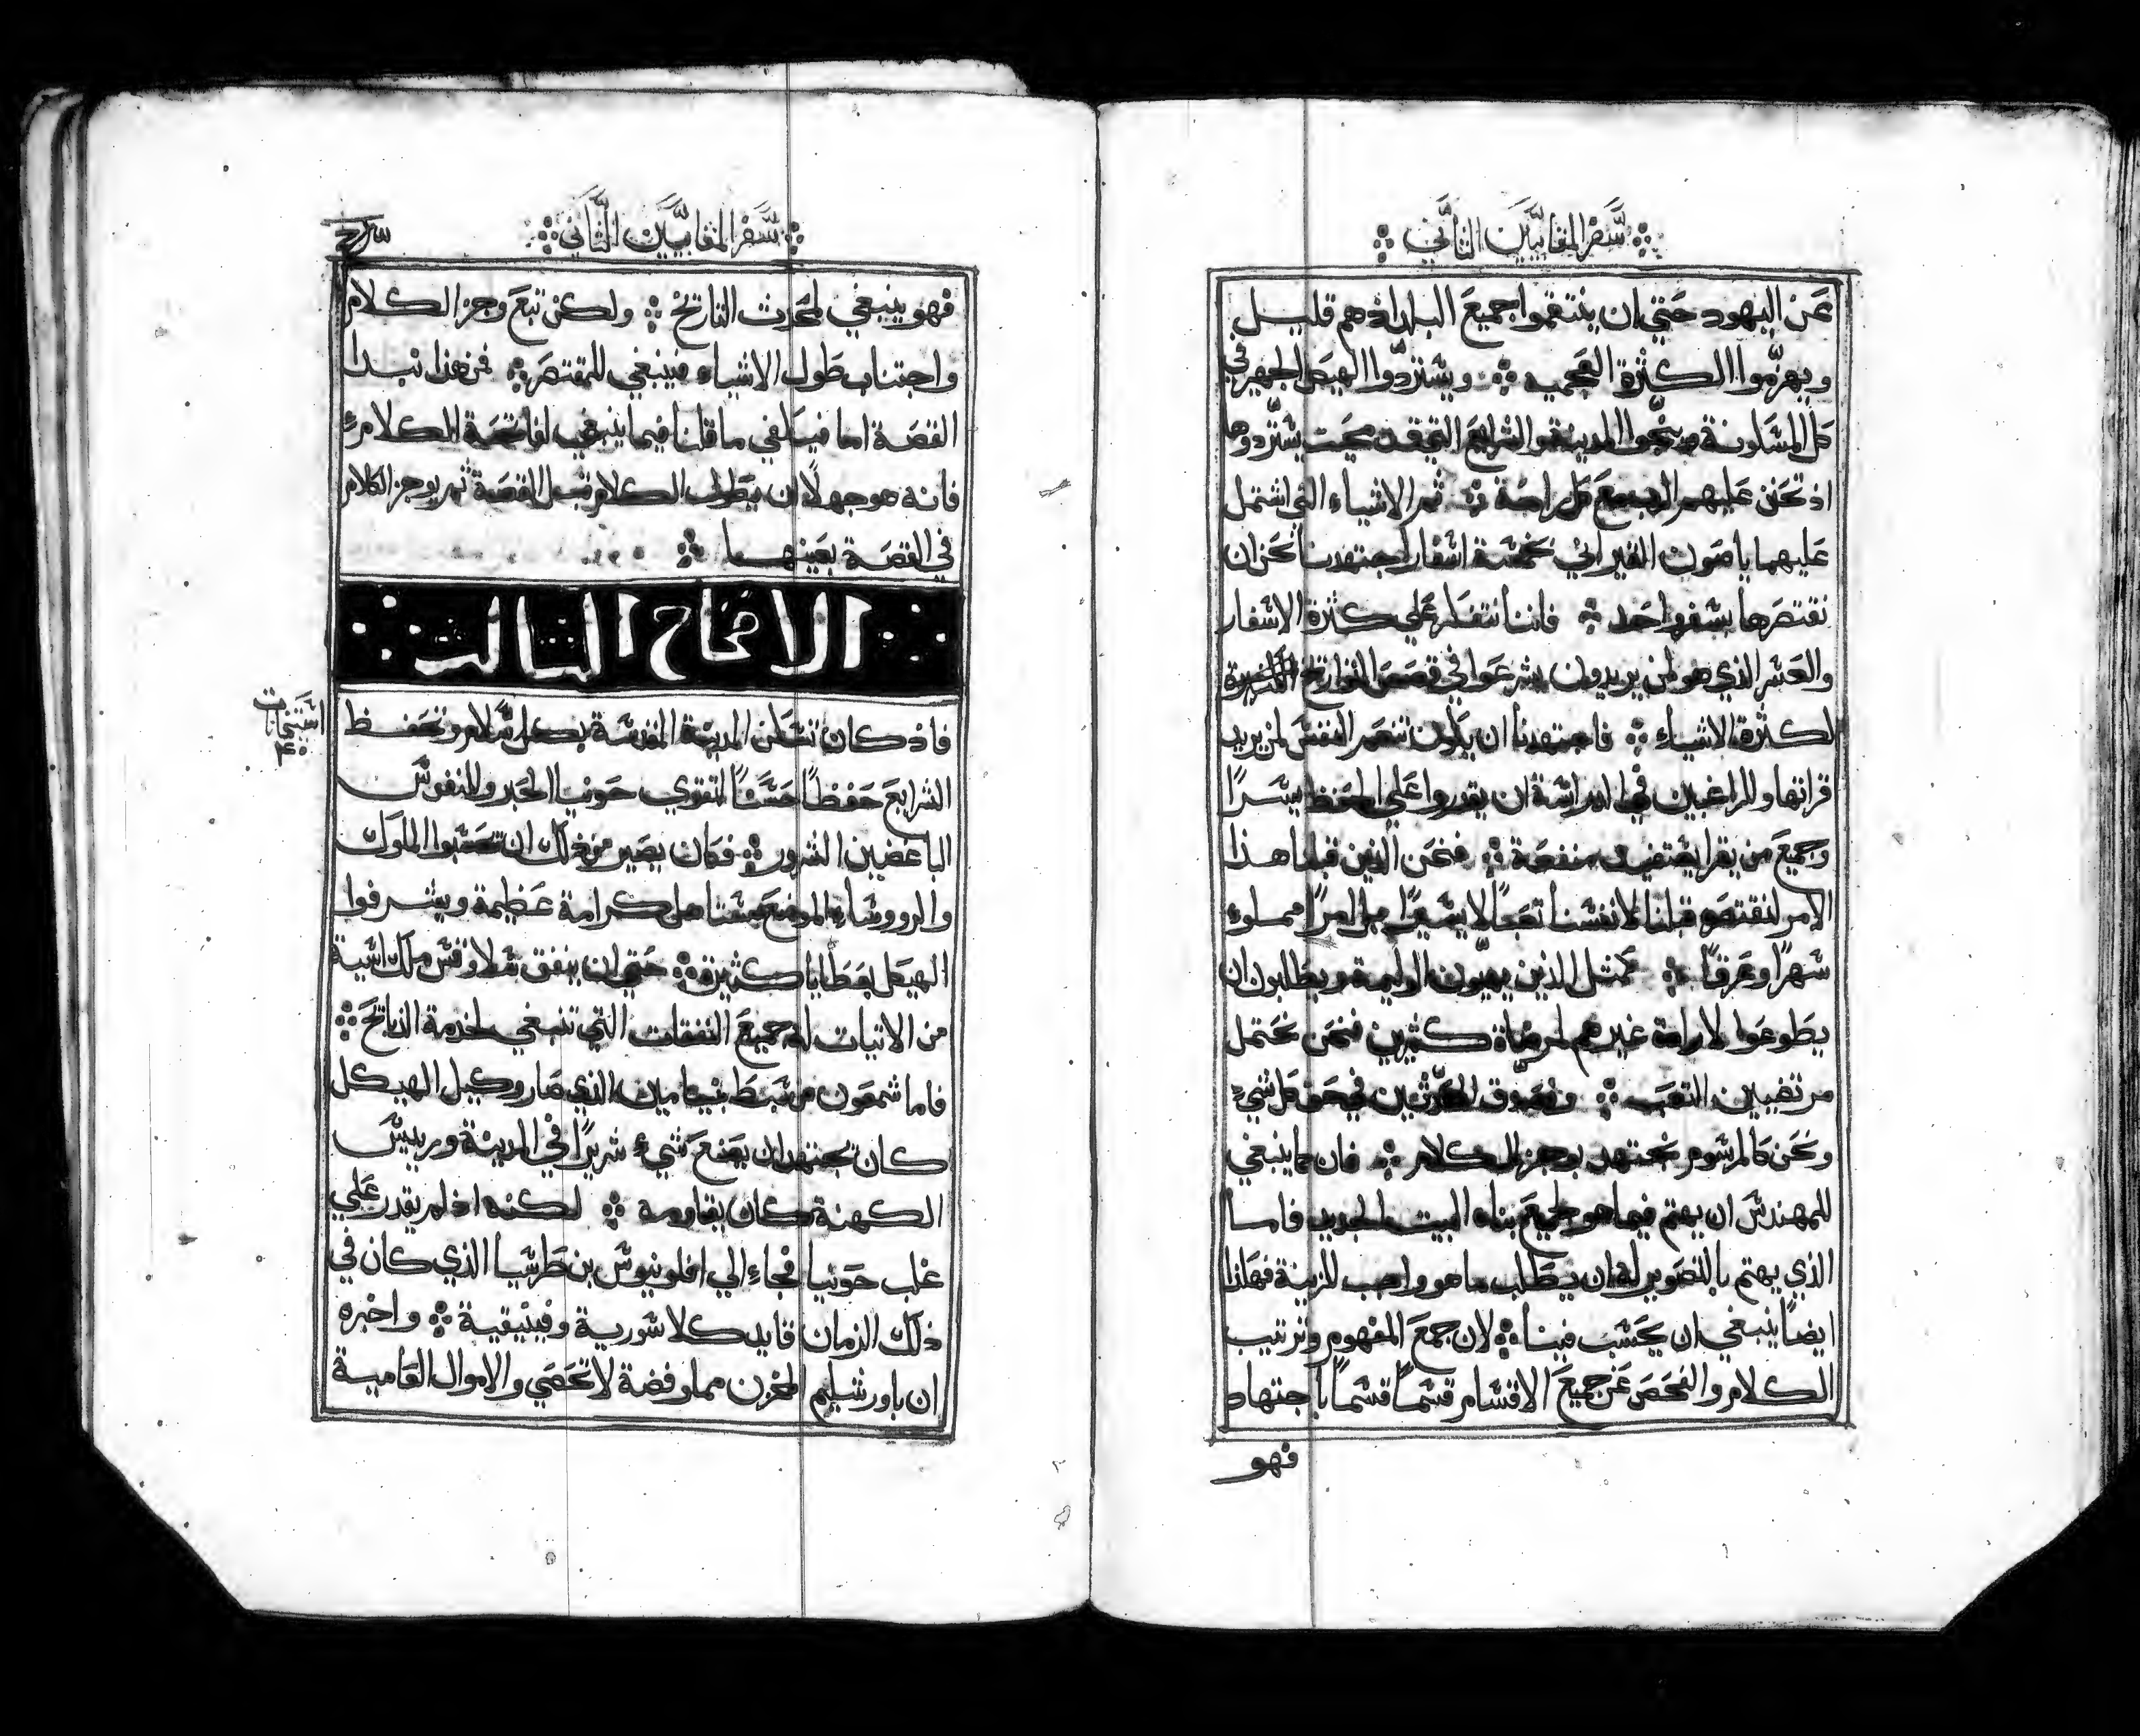 سفر المقابيين الثاني
عن اليهود حتي ان ينتقموا جميع البلد اذ هم قليل
ويهزموا الكثرة العجمية ويستردوا الهيكل الجهير في
كل المسكونة وينجوا المدينة والشرايع التي قد محيت يستردوها
اذ تحنن عليهم الرب مع كل راحة ثم الاشياء التي اشتمل
عليهما ياصون القيراني بخمسة اسفار اجتهدنا نحن ان
نقتصرها بسفر واحد فاننا ننظر علي كثرة الاسفار
والعسر الذي هو لمن يريدون يشرعوا في قصص التواريخ
لكثرة الاشياء فاجتهدنا ان يكون تنعم النفس لمن يريد
قراتها وللراغبين في الدراسة ان يقدروا علي الحفظ يسرًا
وجميع من يقرا منفعة فنحن الذين قبلنا هذا
الامر لنقتصر قبلنا لانفسنا تعبًا لا يسيرًا بل امرًا مملوء
سهرًا وعرقًا كمثل الذين يهيون الوليمة ويطلبون ان
يطوعوا لارادة غيرهم لمرضاة كثيرين فنحن نحتمل
مرتضيين التعب في حق كل شيء
ونحن كالمرسوم نجتهد بوجز الكلام فان كما ينبغي
للمهندس ان يهتم فيما هو لجميع بناء البيت الجديد فاما
الذي يهتم بالتصوير له ان يطلب ما هو واجب للزينة فهكذا
ايضًا ينبغي ان يحسب فينا لان جمع المفهوم وترتيب
الكلام والفحص عن جميع الاقسام قسمًا قسمًا باجتهاد
فهو
سفر المقابيين الثاني
فهو ينبغي لمحدث التاريخ ولكن تبع وجز الكلام
واجتناب طول الاشياء فينبغي للمقتصر فمن هذا نبدا
القصة اما فيكفي ما قلنا فيما ينبغي لفاتحة الكلام
فانه هو جهلًا ان يطول الكلام قبل القصة ثم يوجز الكلام
في القصة بعينها
الاصحاح الثالث
فاذ كان تسكن المدينة المقدسة بكل سلام وتحفظ
الشرايع حفظًا حسنًا لتقوي حونيا الحبر وللنفوس
الباغضين الشرور فكان يصير من ذلك ان تحسبوا الملوك
والرووساء الموضع مستاهل كرامة عظيمة ويشرفوا
الهيكل بعطايا كثيرة حتي ان ينفق سلاوقس ملك اسية
من الاتيات له جميع النفقات التي تنبغي لخدمة الذبايح
فاما شمعون من سبط بنيامين الذي صار وكيل الهيكل
كان يجتهد ان يصنع شيء شريرًا في المدينة وربيس
الكهنة كان يقاومه لكنه اذ لم يقدر علي
غلب حونيا فجاء الي افلونيوس بن طرسيا الذي كان في
ذلك الزمان قايد كلاسورية وفينيقية واخبره
ان باورشليم المخزن مملو فضة لا تحصي والاموال العامية